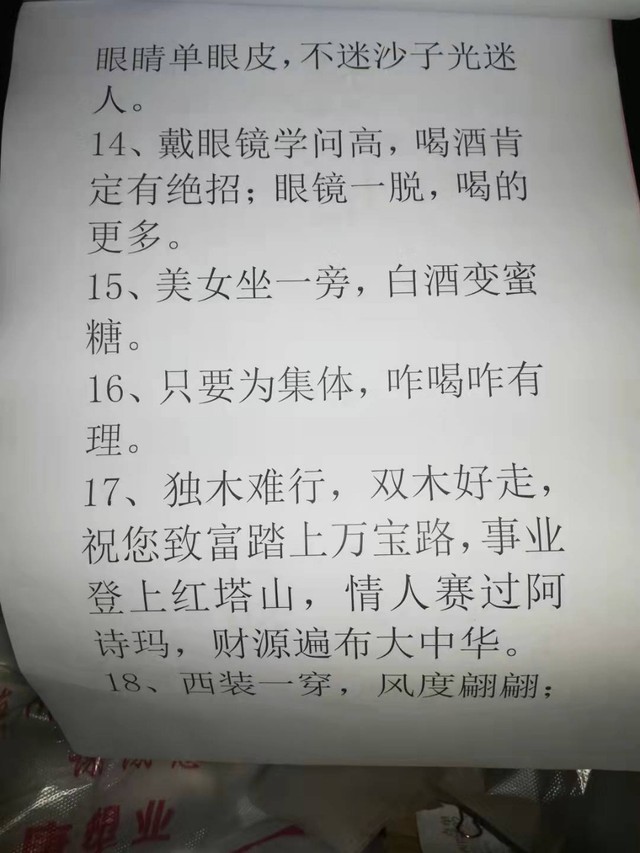 眼睛单眼皮，不迷沙子光迷
人。
14、戴眼镜学问高，喝酒肯
定有绝招；眼镜一脱，喝的
更多。
15、美女坐一旁，白酒变蜜
糖。
16、只要为集体，咋喝咋有
理。
17、独木难行，双木好走，
祝您致富踏上万宝路，事业
登上红塔山，情人赛过阿
诗玛，财源遍布大中华。
18、西装一穿，风度翩翩；